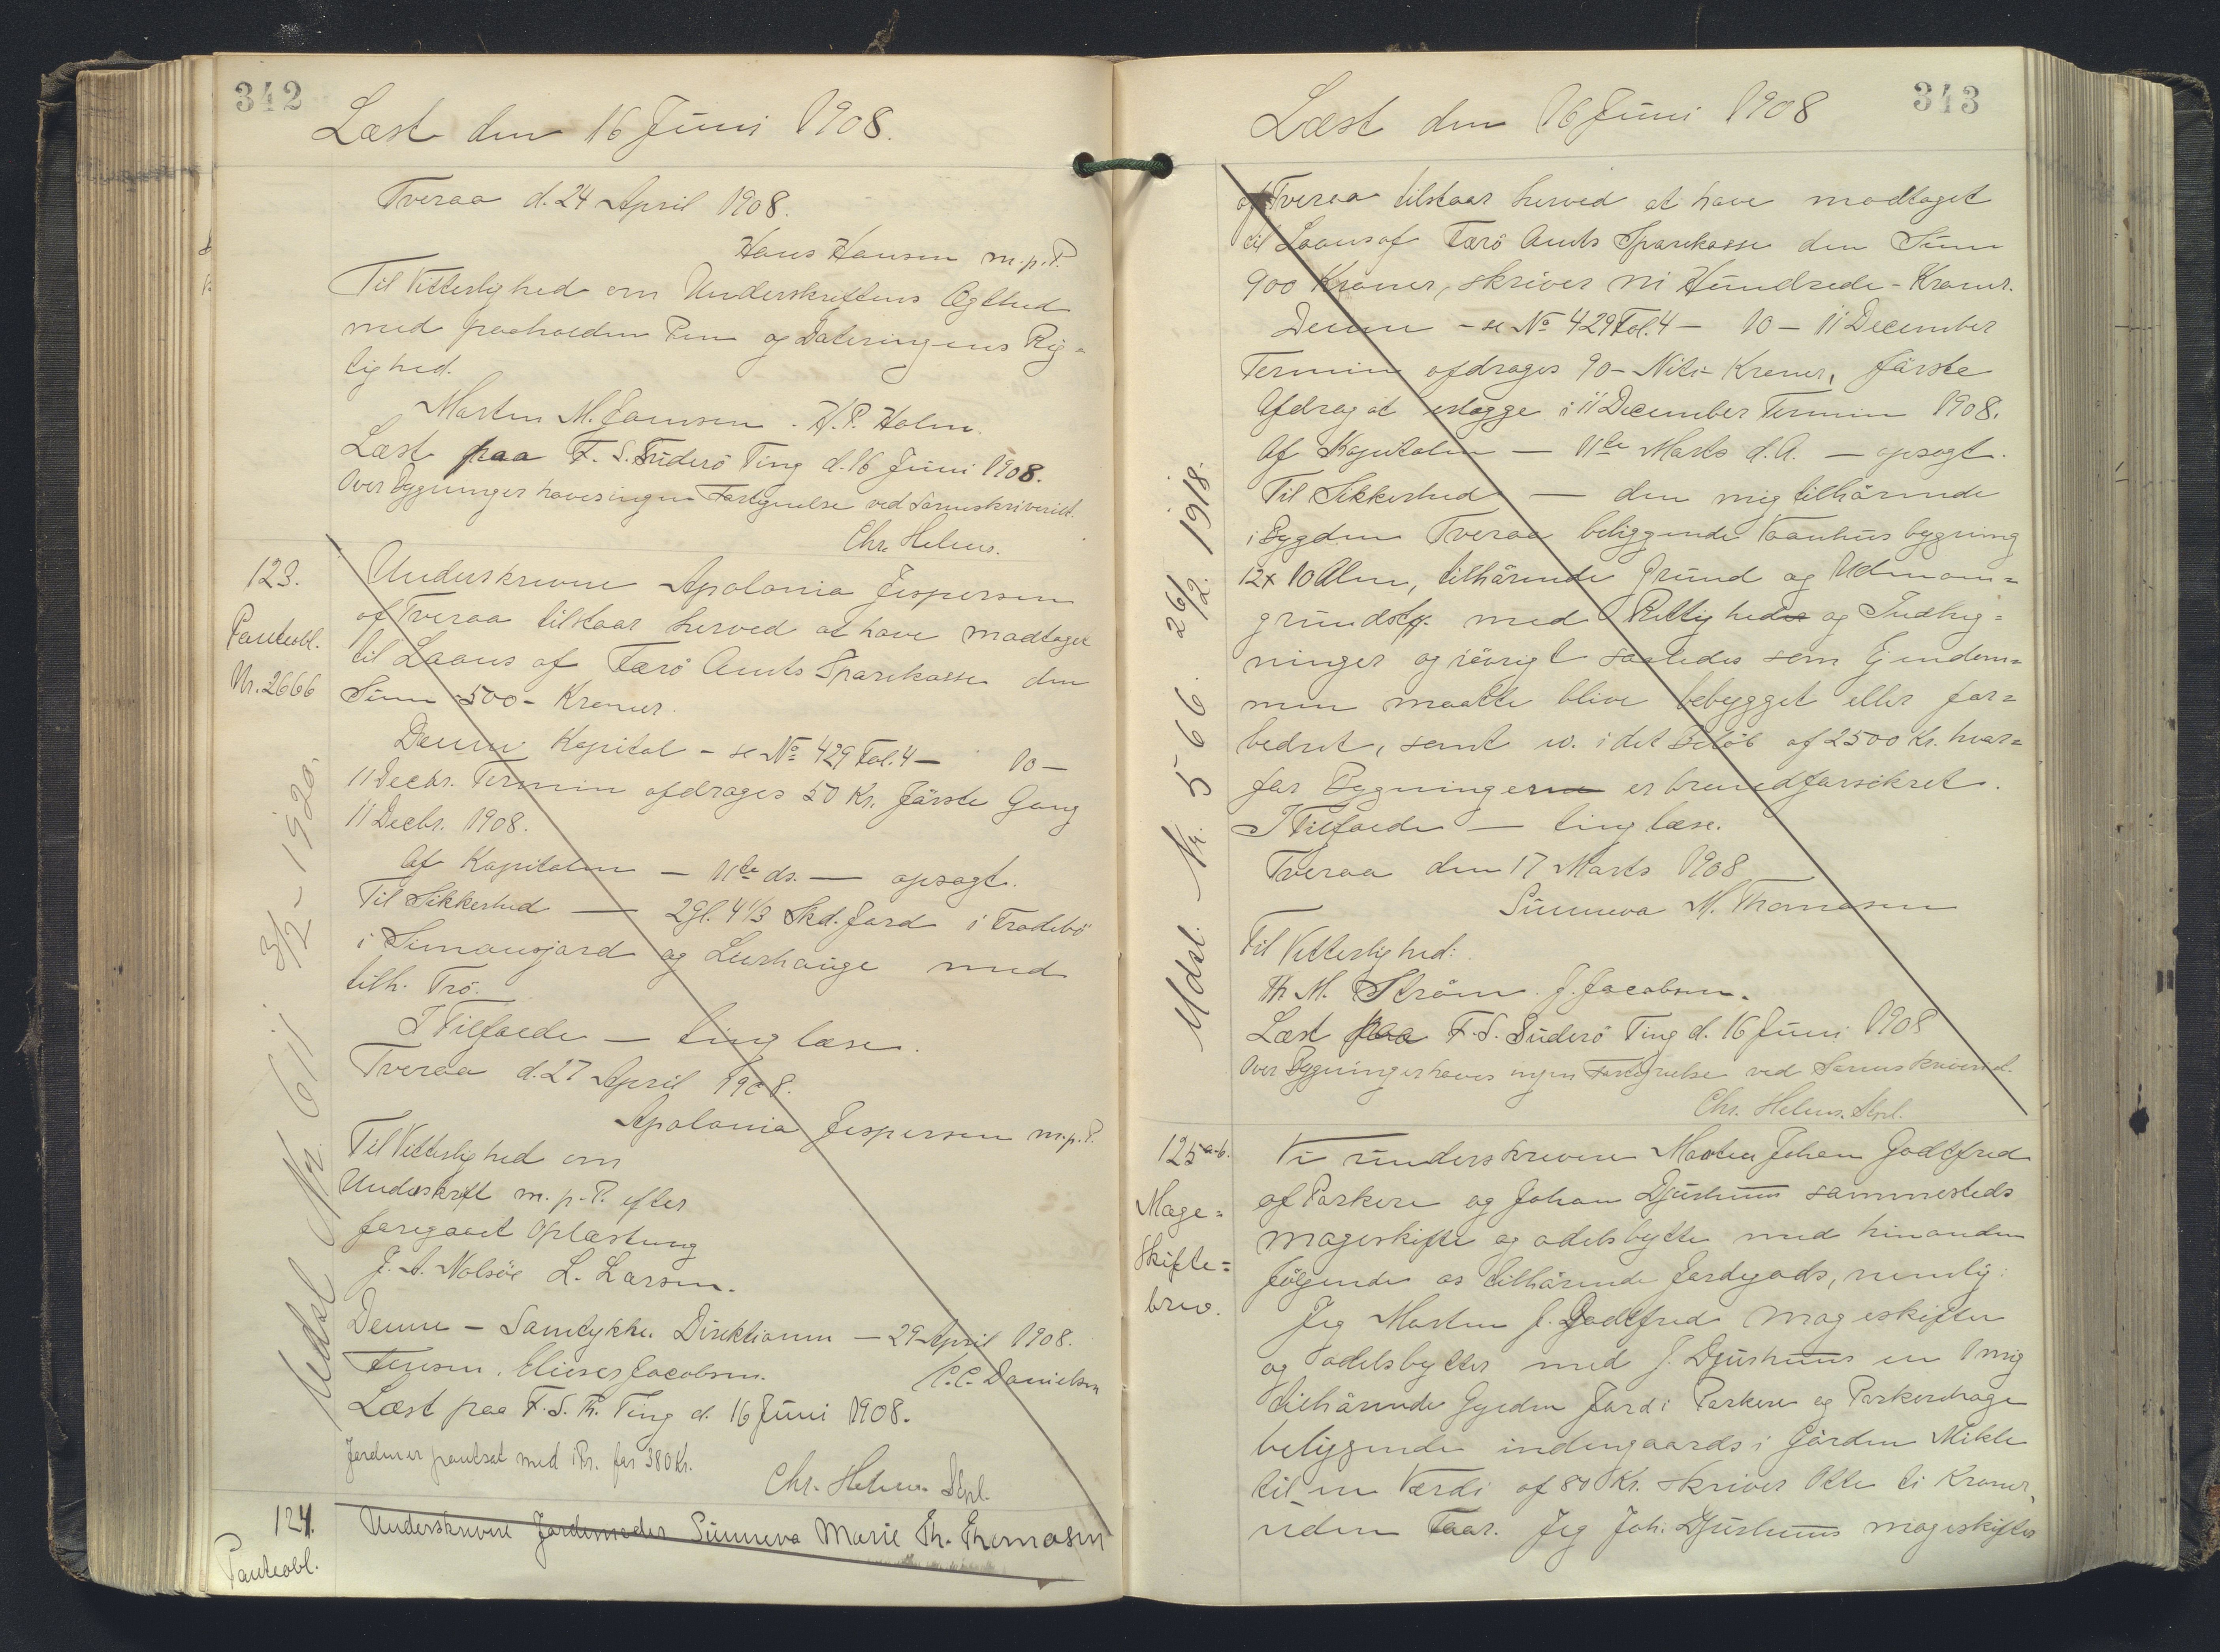 342
Læst den 16 Juni 1908.
Tveraa d. 24 April 1908.
Hans Hansen m.p.P.
Til Vitterlighed om Underskriftens Ægthed
med paaholden Pen og Dateringens Rig=
tighed.
Morten M. Joensen. H.P. Holm.
Læst paa F. S. Suderö Ting d. 16 Juni 1908.
Over Bygninger haves ingen Fortegnelse ved Sorenskriveriet.
Chr. Helms.
123.
Panteobl.
Nr. 2666
Underskrevne Apolonia Jespersen
af Tveraa tilstaar herved at have modtaget
til Laans af Færö Amts Sparekasse den
Sum 500 - Kroner.
Denne Kapital - se No 429 Fol. 4 — 10 —
11 Decbr. Termin afdrages 50 Kr. förste Gang
11 Decbr. 1908.
Af Kapitalen — 11te ds. — opsagt.
Til Sikkerhed — 2 Gl. 4 1/3 Skd. Jord i Trodebö
i Simonsjord og Leershauge med
tilh. Trö.
I Tilfælde — tinglæse.
Tveraa d. 27 April 1908.
Apolonia Jespersen m.p.P.
Til Vitterlighed om
Underskrift m.p.P. efter
foregaaet Oplæsning
J. A. Nolsöe L. Larsen.
Denne — Samtykke. Direktionen — 29 April 1908.
Jensen. Elieser Jacobsen. C.C. Danielsen
Læst paa F. S. Th. Ting d. 16 Juni 1908.
Jorden er pantsat med 1 Pr. for 380 Kr.
Chr. Helms. Skrl.
Udsl Nr. 611 3/2 - 1920.
124.
Panteobl.
Underskrevne Jordemoder Sünneva Marie Th. Thomasen
343
Læst den 16 Juni 1908
af Tveraa tilstaar herved at have modtaget
til Laans af Færö Amts Sparekasse den Sum
900 Kroner, skriver ni Hundrede - Kroner.
Denne - se No 429 Fol. 4 — 10 — 11 December
Termin afdrages 90 - Niti - Kroner, förste
Afdrag at erlægge i 11 December Termin 1908.
Af Kapitalen — 11te Marts d. A. — opsagt.
Til Sikkerhed — den mig tilhörende
i Bygden Tveraa beliggende Vaanhusbygning
12 x 10 Alen, tilhörende Grund og Udenom=
grundstk. med Rettigheder og Indheg=
ninger og iövrigt saaledes som Ejendom=
men maatte blive bebygget eller for=
bedret, samt ev. i det Belöb af 2500 Kr. hvor=
for Bygningerne er brandforsikret.
I Tilfælde — tinglæse.
Tveraa den 17 Marts 1908
Sünneva M. Thomasen
Til Vitterlighed:
Th. M. Ström. J. Jacobsen.
Læst paa F. S. Suderö Ting d. 16 Juni 1908
Over Bygninger haves ingen Fortegnelse ved Sorenskriveriet.
Chr. Helms. Skrl.
Udsl. Nr. 566. 26/2. 1918.
125 a-b.
Mage=
skifte=
brev.
Vi underskrevne Morten Johan Godtfred
af Porkere og Johan Djurhuus sammesteds
mageskifte og odelsbytte med hinanden
fölgende os tilhörende Jordegods, nemlig:
Jeg Morten J. Godtfred mageskifter
og odelsbytter med J. Djurhuus en mig
tilhörende Gyeden Jord i Porkere og Porkershage
beliggende indengaards i Görden Mikle
til en Værdi af 80 Kr. skriver Otte ti Kroner,
uden Faar. Jeg Joh. Djurhuus mageskifter